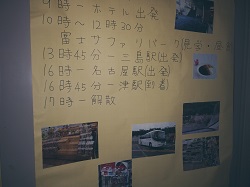 9時-ホテル出発
10時~12時30分
富士サファリパーク(見学・
13時45分-三島駅(出発)
16時-名古屋駅(出発)
16時45分-津駅(到着)
17時-解散